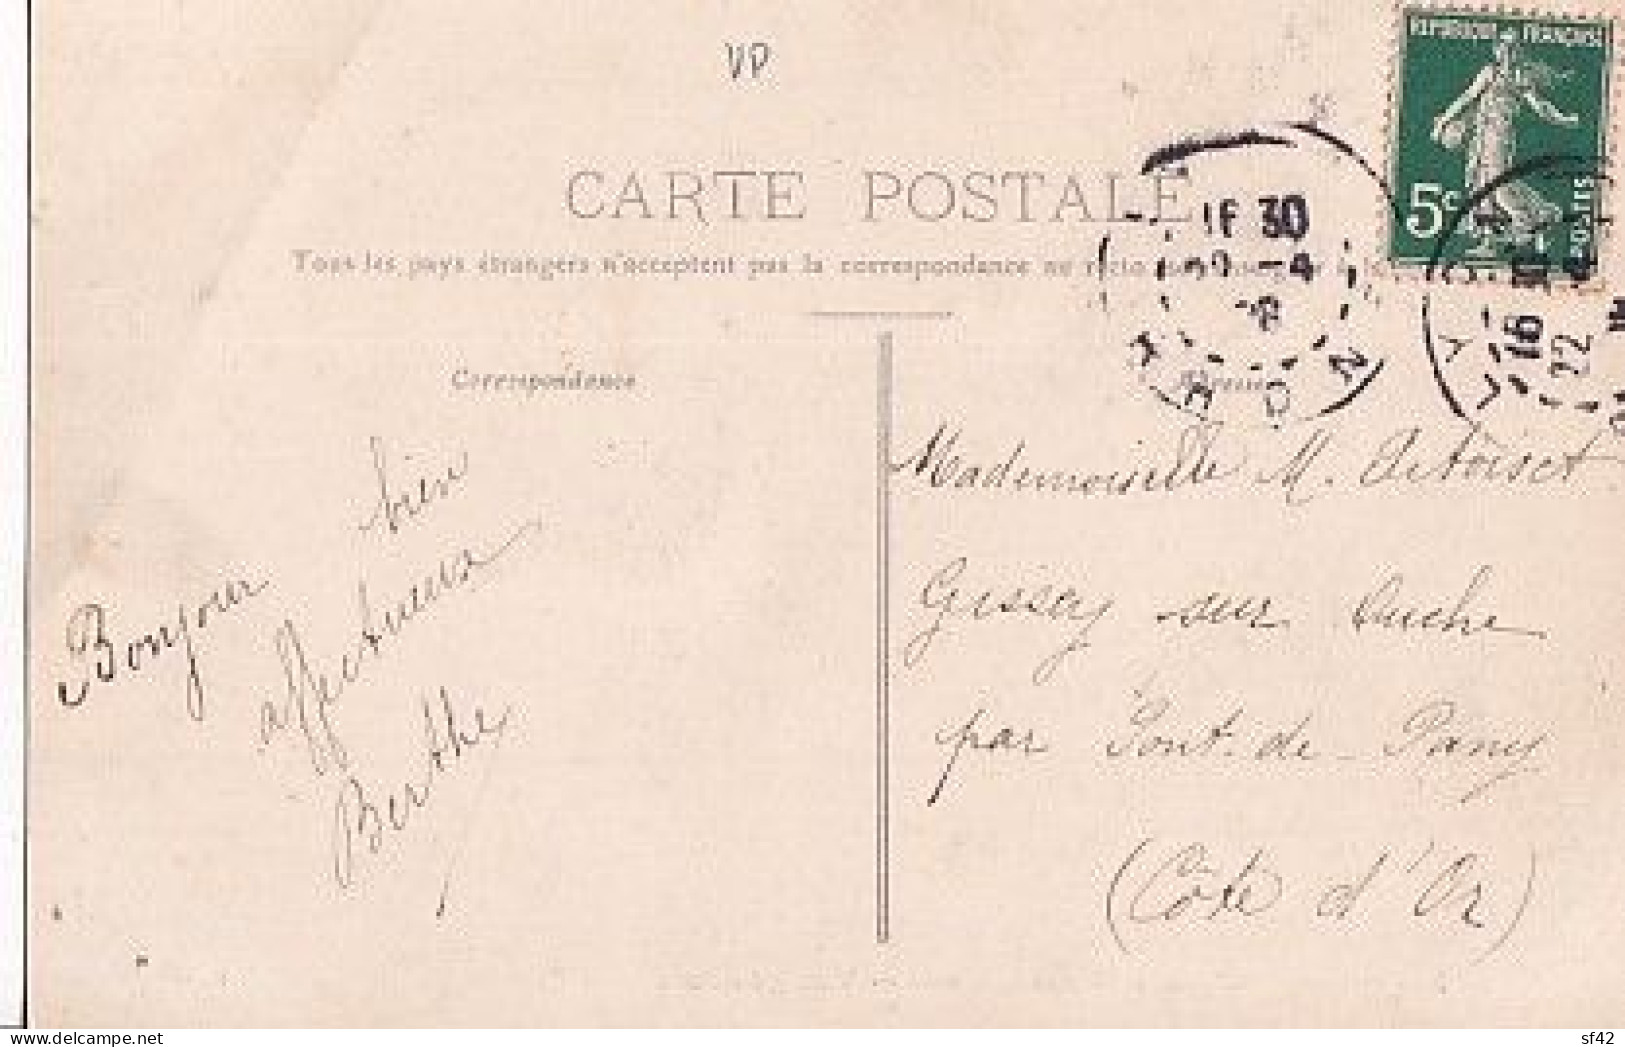 VP
REPUBLIQUE FRANÇAISE
5c
POSTES
CARTE POSTALE
Tous les pays étrangers n'acceptent pas la correspondance au recto
30
Correspondance
Adresse
LYON
16
22
Bonjour bien
affectueux
Berthe
Mademoiselle M.
Gissey sur Ouche
par Pont-de-Pany
(Côte d'Or)
delcampe.net
sf42